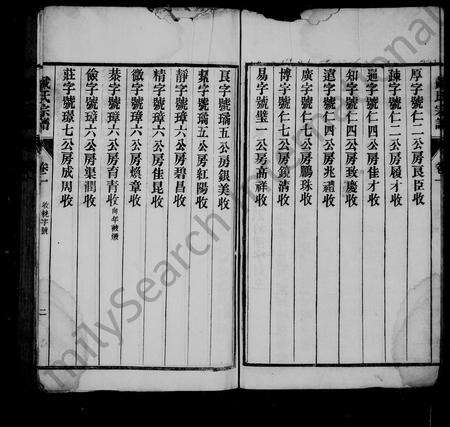 厚字號仁二公房良臣收
疎字號仁二公房履才收
通字號仁四公房佳才收
知字號仁四公房致慶收
遠字號仁四公房兆禮收
廣字號仁七公房鵬珠收
博字號仁七公房鏡清收
易字號璧一公房高祥收
良字號璊五公房銀美收
絜字號璊五公房紅陽收
靜字號璋六公房碧昌收
精字號璋六公房佳昆收
微字號璋六公房煥章收
恭字號璋六公房育青收 向年被燬
儉字號璋六公房集潤收
莊字號璟七公房成周收
戴氏宗譜
卷一
收執字號
二
FamilySearch International